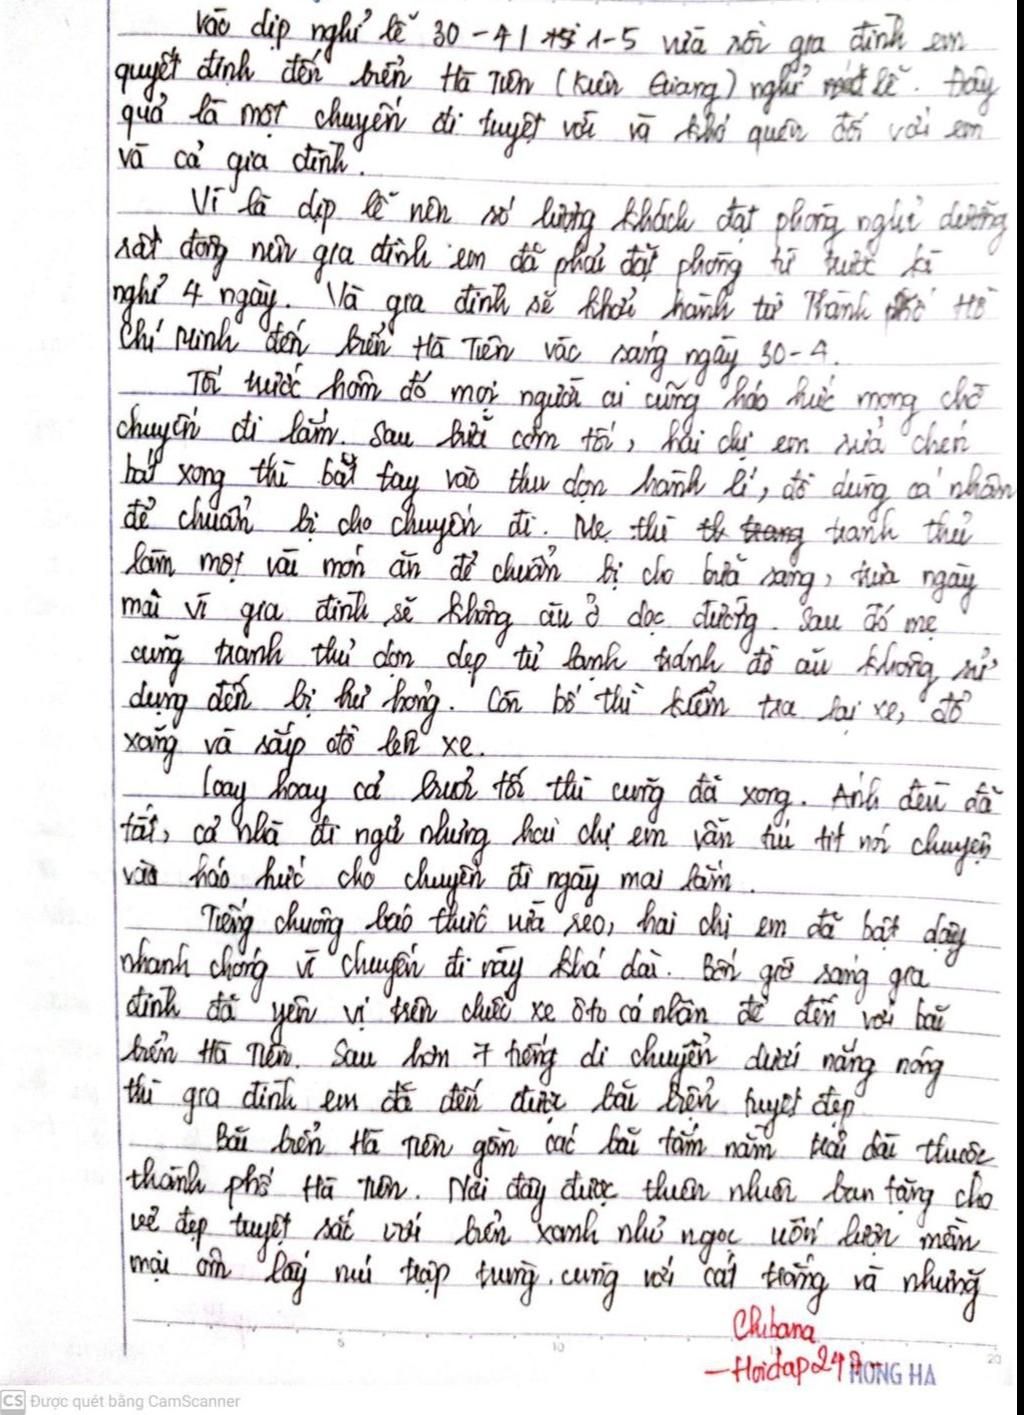 Vào dịp nghỉ lễ 30-4 1-5 vừa rồi gia đình em
quyết định đến biển Hà Tiên (Kiên Giang) nghỉ lễ. Đây
quả là một chuyến đi tuyệt vời và khó quên đối với em
và cả gia đình.
Vì là dịp lễ nên số lượng khách đặt phòng nghỉ dưỡng
rất đông nên gia đình em đã phải đặt phòng từ trước kì
nghỉ 4 ngày. Và gia đình sẽ khởi hành từ Thành phố Hồ
Chí Minh đến biển Hà Tiên vào sáng ngày 30-4.
Tối trước hôm đó mọi người ai cũng háo hức mong chờ
chuyến đi lắm. Sau bữa cơm tối, hai chị em rửa chén
bát xong thì bắt tay vào thu dọn hành lí, đồ dùng cá nhân
để chuẩn bị cho chuyến đi. Mẹ thì tranh thủ
làm một vài món ăn để chuẩn bị cho bữa sáng, trưa ngày
mai vì gia đình sẽ không ăn ở dọc đường. Sau đó mẹ
cũng tranh thủ dọn dẹp tủ lạnh tránh đồ ăn không sử
dụng đến bị hư hỏng. Còn bố thì kiểm tra lại xe, đổ
xăng và sắp đồ lên xe.
Loay hoay cả buổi tối thì cũng đã xong. Ánh đèn đã
tắt, cả nhà đi ngủ nhưng hai chị em vẫn ríu rít nói chuyện
và háo hức cho chuyến đi ngày mai lắm.
Tiếng chuông báo thức vừa reo, hai chị em đã bật dậy
nhanh chóng vì chuyến đi này khá dài. Bốn giờ sáng gia
đình đã yên vị trên chiếc xe ôtô cá nhân để đến với bãi
biển Hà Tiên. Sau hơn 7 tiếng di chuyển dưới nắng nóng
thì gia đình em đã đến được bãi biển tuyệt đẹp.
Bãi biển Hà Tiên gồm các bãi tắm nằm trải dài thuộc
thành phố Hà Tiên. Nơi đây được thiên nhiên ban tặng cho
vẻ đẹp tuyệt sắc với biển xanh như ngọc uốn lượn mềm
mại ôm lấy núi trập trùng, cùng với cát trắng và những
Chibana
-Hoidap247
HONG HA
5
10
20
CS Được quét bằng CamScanner